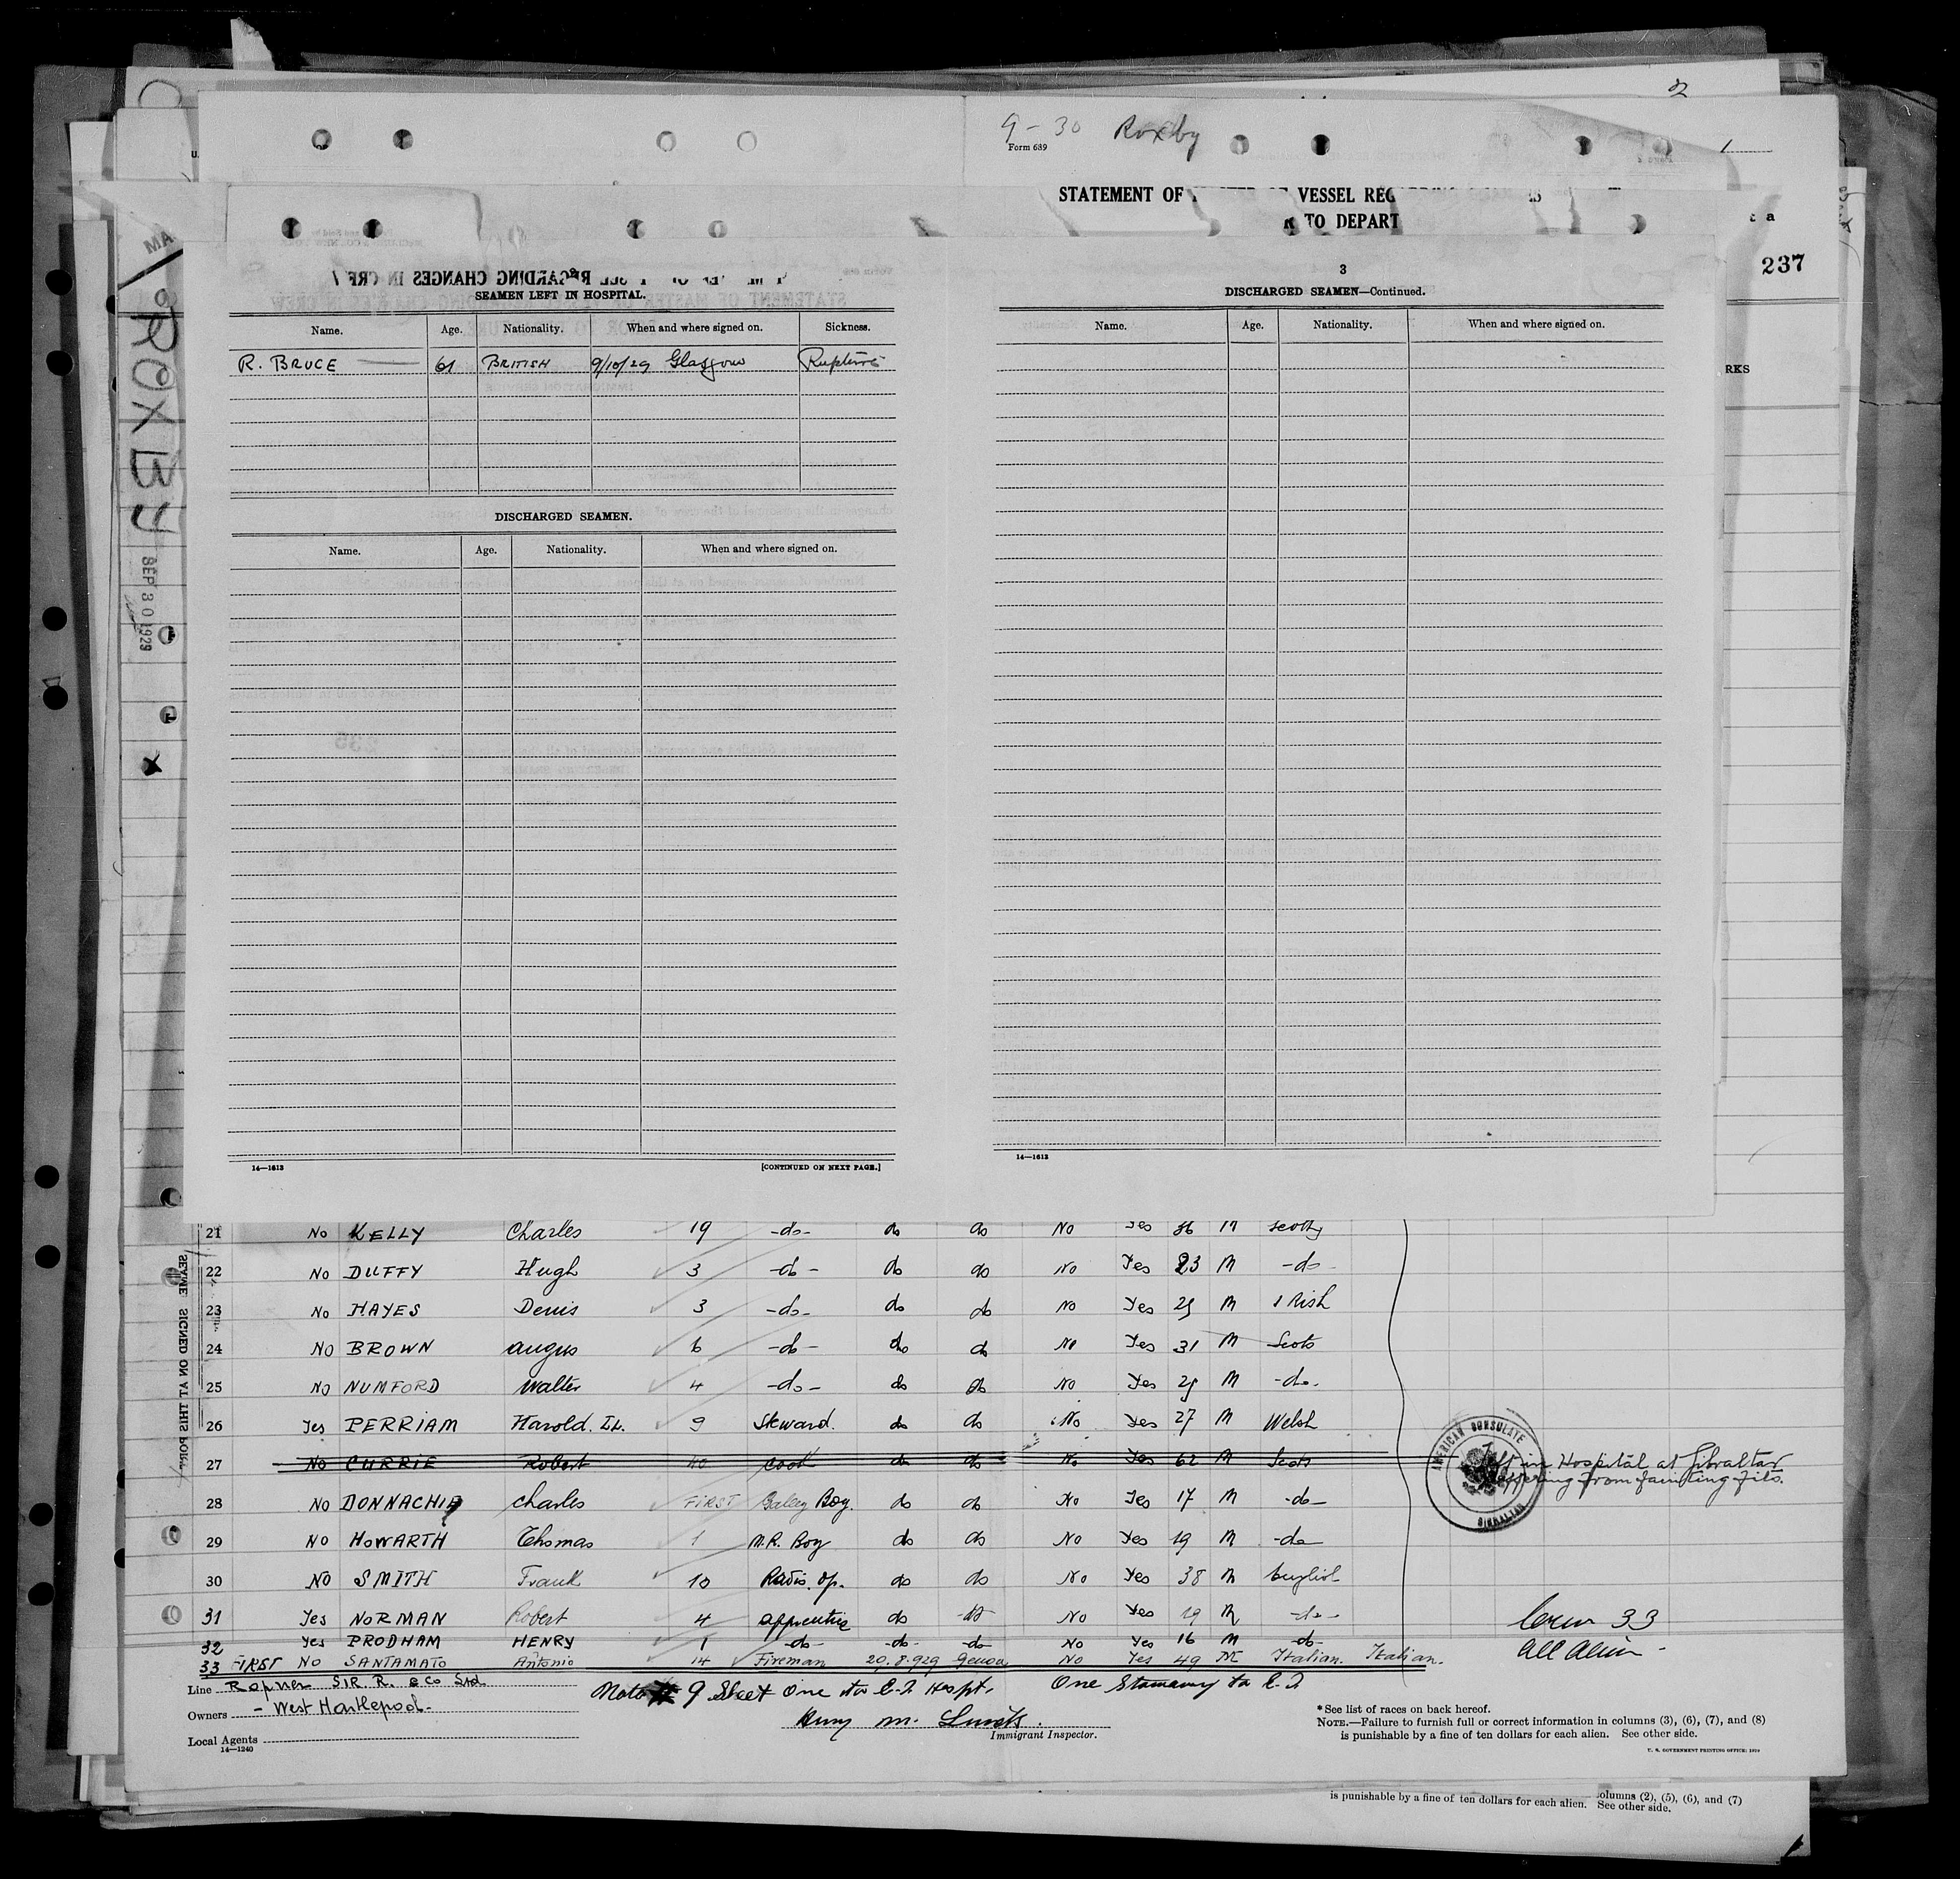 9-30 Roxby
Form 689
STATEMENT OF VESSEL REG
TO DEPART
237
RKS
ROXBY
SEP 30 1929
SEAMEN LEFT IN HOSPITAL.
Name. Age. Nationality. When and where signed on. Sickness.
R. BRUCE 61 BRITISH 9/10/29 Glasgow Rupture
DISCHARGED SEAMEN.
Name. Age. Nationality. When and where signed on.
14—1613 [CONTINUED ON NEXT PAGE.]
3
DISCHARGED SEAMEN—Continued.
Name. Age. Nationality. When and where signed on.
14—1613
21 No KELLY Charles 19 -do- do do No Yes 36 M Scotty
22 No DUFFY Hugh 3 -do- do do No Yes 23 M -do-
23 No HAYES Denis 3 -do- do do No Yes 25 M Irish
24 No BROWN angus 6 -do- do do No Yes 31 M Scots
25 No NUMFORD Walter 4 -do- do do No Yes 25 M -do-
26 Yes PERRIAM Harold. 9 Steward. do do No Yes 27 M Welsh
27 No CURRIE Robert 40 Cook do do No Yes 62 M Scots Left in Hospital at Gibraltar
suffering from fainting fits.
AMERICAN CONSULATE
GIBRALTAR
28 No DONNACHIE Charles FIRST Galley Boy. do do No Yes 17 M -do-
29 No HOWARTH Thomas 1 M.R. Boy do do No Yes 19 M -do-
30 No SMITH Frank 10 Radio. Op. do do No Yes 38 M English
31 Yes NORMAN Robert 4 apprentice do do No Yes 19 M -do-
Crew 33
32 Yes PRODHAM HENRY 1 -do- -do- -do- No Yes 16 M -do-
All Alien
33 FIRST No SANTAMATO Antonio 14 Fireman 20.8.929 Genoa No Yes 49 M Italian. Italian.
Line Ropner SIR. R. & Co Ltd
Owners - West Hartlepool.
Local Agents
14—1240
Note # 9 Sheet One to E.I Hospt. One Stowaway to E.I
Immigrant Inspector.
*See list of races on back hereof.
NOTE.—Failure to furnish full or correct information in columns (3), (6), (7), and (8)
is punishable by a fine of ten dollars for each alien. See other side.
U. S. GOVERNMENT PRINTING OFFICE: 1929
columns (2), (5), (6), and (7)
is punishable by a fine of ten dollars for each alien. See other side.
SEAMEN SIGNED ON AT THIS PORT